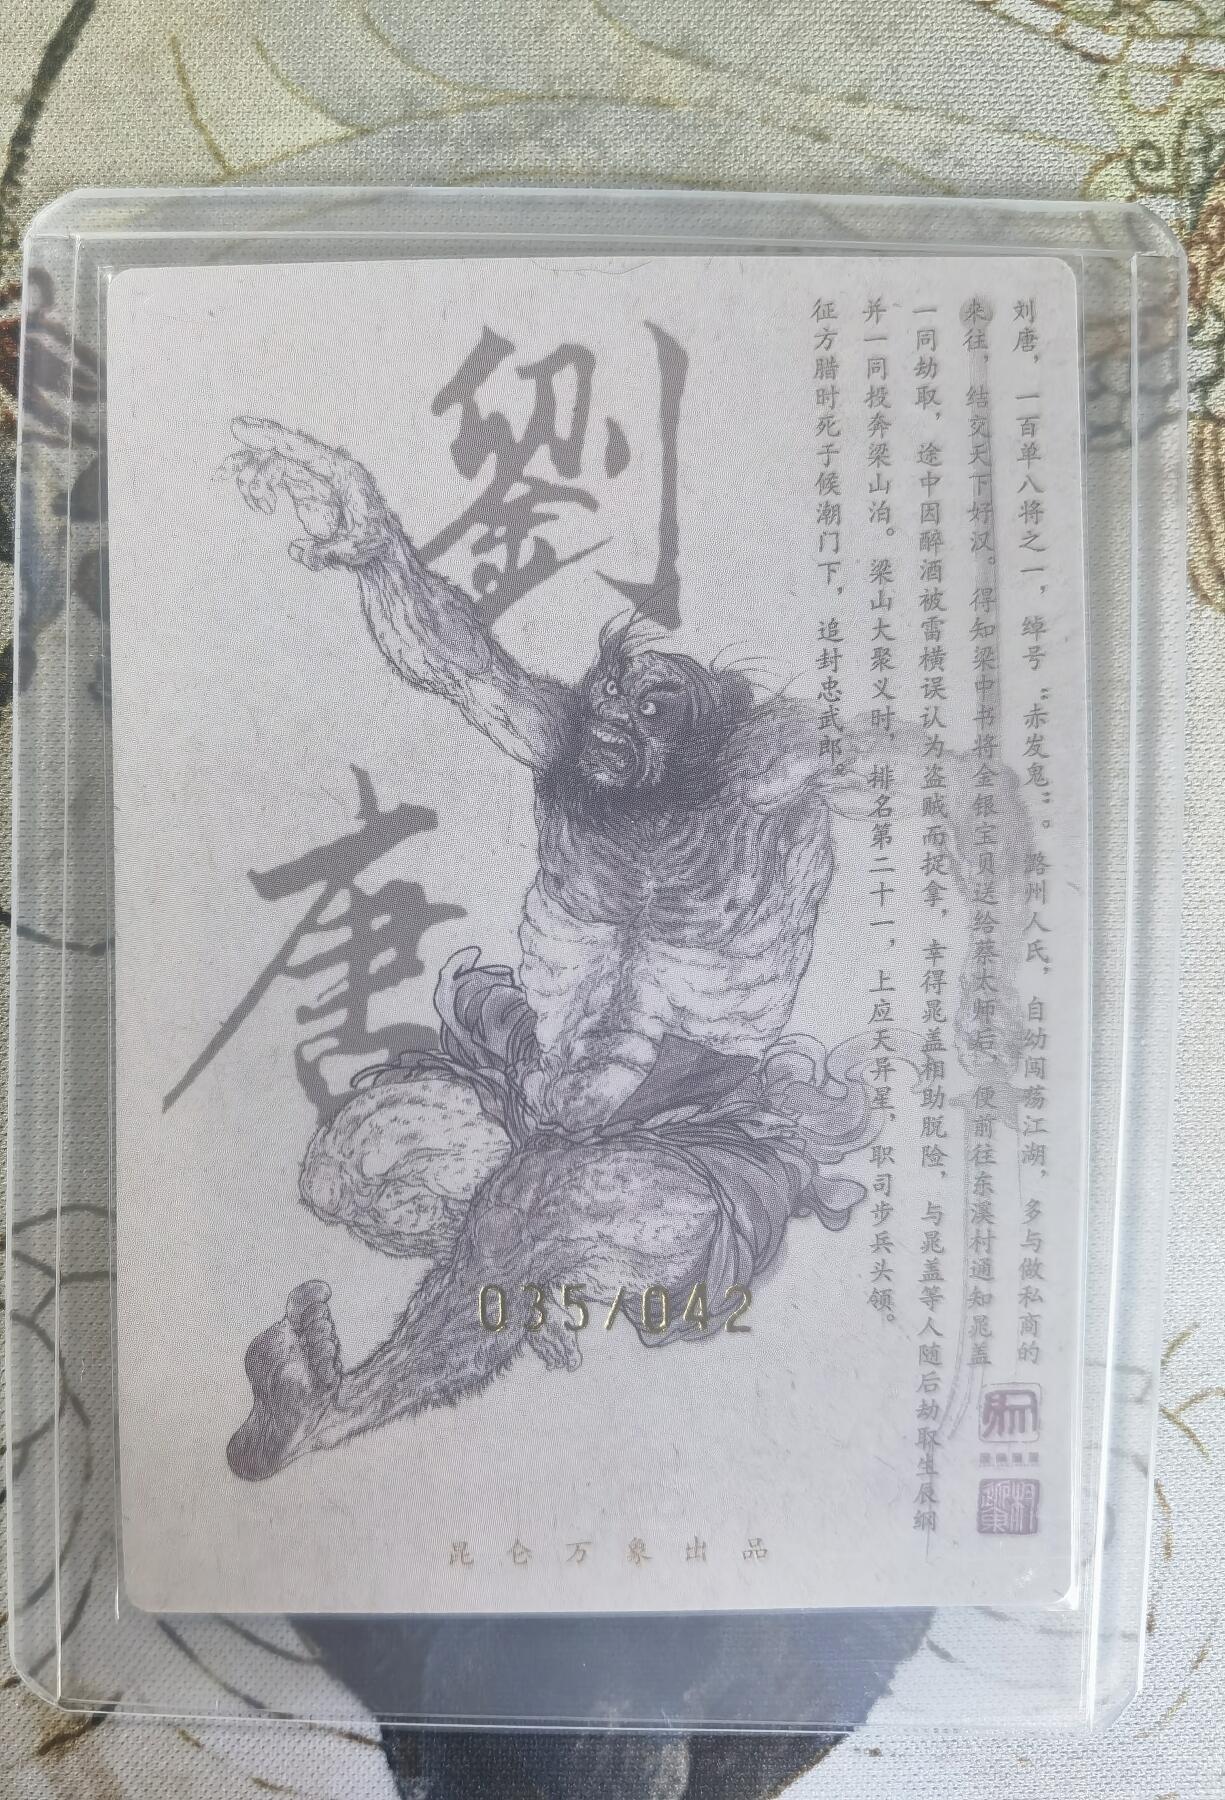 劉唐
刘唐，一百单八将之一，绰号“赤发鬼”。潞州人氏，自幼闯荡江湖，多与做私商的
来往，结交天下好汉。得知梁中书将金银宝贝送给蔡太师后，便前往东溪村通知晁盖
一同劫取，途中因醉酒被雷横误认为盗贼而捉拿，幸得晁盖相助脱险，与晁盖等人随后劫取生辰纲
并一同投奔梁山泊。梁山大聚义时，排名第二十一，上应天异星，职司步兵头领。
征方腊时死于候潮门下，追封忠武郎。
035/042
昆仑万象出品